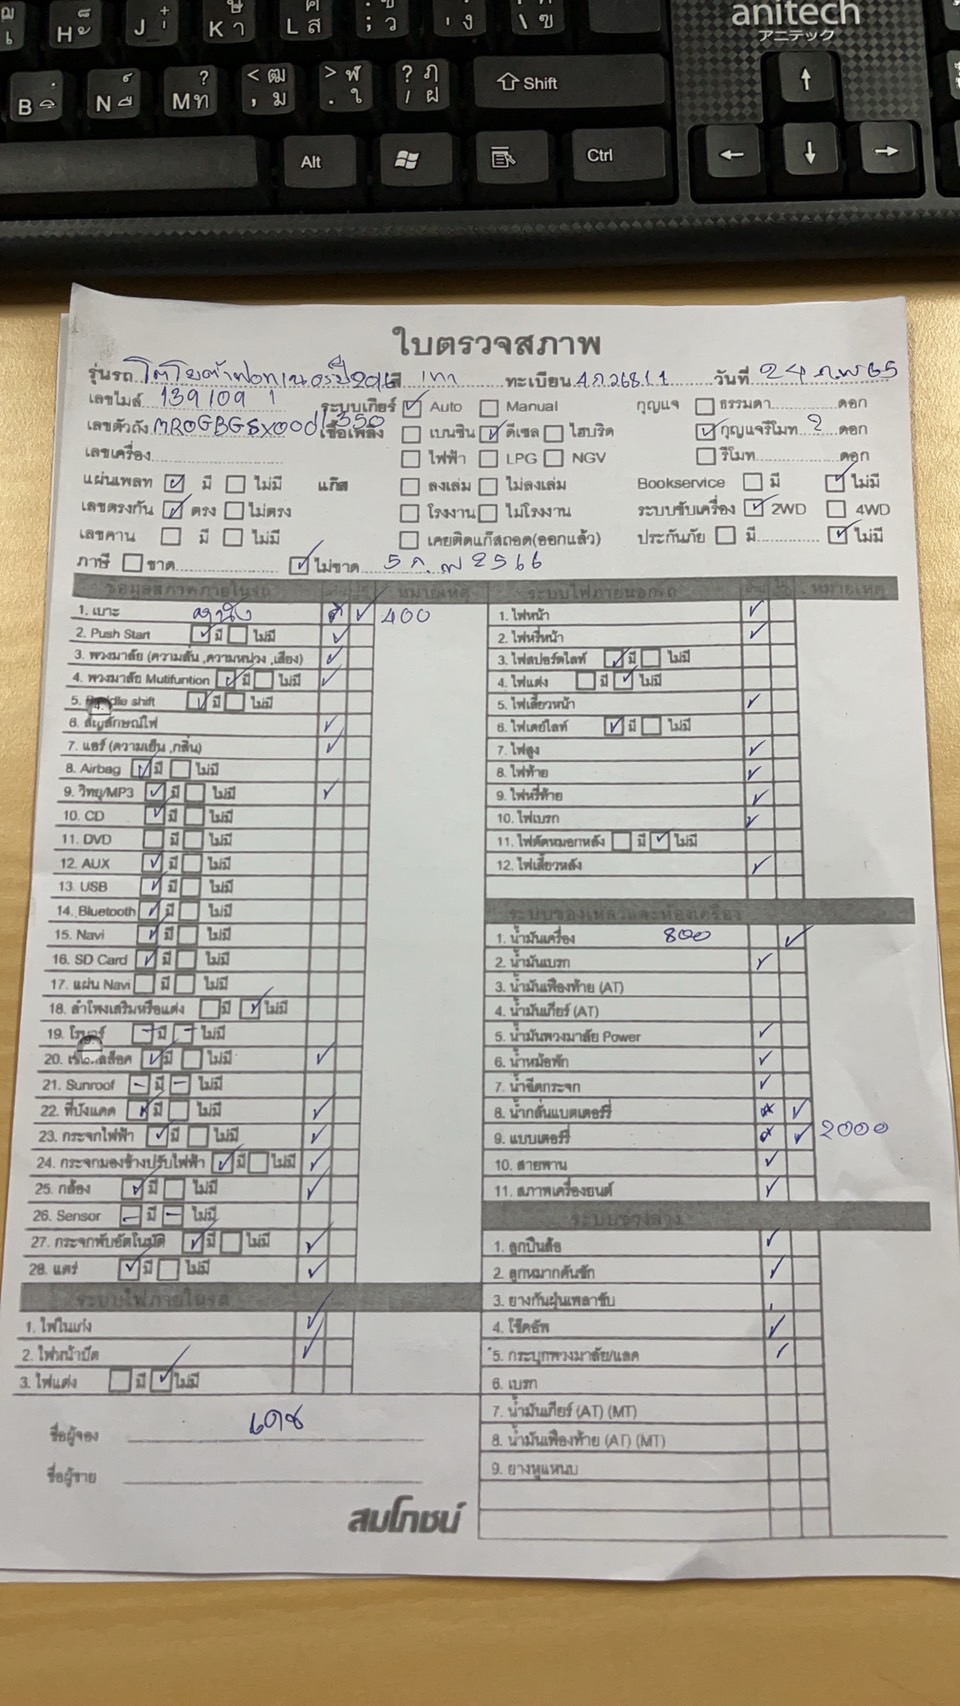 anitech
アニテック
Shift
Alt
Ctrl
ใบตรวจสภาพ
รุ่นรถ สี เทา ทะเบียน วันที่ 24 ก.พ 65
เลขไมล์ 139109 ระบบเกียร์ Auto Manual กุญแจ ธรรมดา ดอก
เลขตัวถัง เชื้อเพลิง เบนซิน ดีเซล ไฮบริด กุญแจรีโมท 2 ดอก
เลขเครื่อง ไฟฟ้า LPG NGV รีโมท ดอก
แผ่นเพลท มี ไม่มี แก๊ส ลงเล่ม ไม่ลงเล่ม Bookservice มี ไม่มี
เลขตรงกัน ตรง ไม่ตรง โรงงาน ไม่โรงงาน ระบบขับเครื่อง 2WD 4WD
เลขคาน มี ไม่มี เคยติดแก๊สถอด(ออกแล้ว) ประกันภัย มี ไม่มี
ภาษี ขาด ไม่ขาด 5 ก.พ 2566
ข้อมูลสภาพภายในรถ หมายเหตุ
1. เบาะ 400
2. Push Start มี ไม่มี
3. พวงมาลัย (ความสั่น ,ความหน่วง ,เสียง)
4. พวงมาลัย Mutifuntion มี ไม่มี
5. shift มี ไม่มี
6. สัญลักษณ์ไฟ
7. แอร์ (ความเย็น ,กลิ่น)
8. Airbag มี ไม่มี
9. วิทยุ/MP3 มี ไม่มี
10. CD มี ไม่มี
11. DVD มี ไม่มี
12. AUX มี ไม่มี
13. USB มี ไม่มี
14. Bluetooth มี ไม่มี
15. Navi มี ไม่มี
16. SD Card มี ไม่มี
17. แผ่น Navi มี ไม่มี
18. ลำโพงเสริมหรือแต่ง มี ไม่มี
19. มี ไม่มี
20. มี ไม่มี
21. Sunroof มี ไม่มี
22. ที่บังแดด มี ไม่มี
23. กระจกไฟฟ้า มี ไม่มี
24. กระจกมองข้างปรับไฟฟ้า มี ไม่มี
25. กล้อง มี ไม่มี
26. Sensor มี ไม่มี
27. กระจกพับอัตโนมัติ มี ไม่มี
28. แตร มี ไม่มี
ระบบไฟภายในรถ
1. ไฟในเก๋ง
2. ไฟหน้าปัด
3. ไฟแต่ง มี ไม่มี
ชื่อผู้จอง เดช
ชื่อผู้ขาย
สมโภชน์
ระบบไฟภายนอกรถ หมายเหตุ
1. ไฟหน้า
2. ไฟหรี่หน้า
3. ไฟสปอร์ตไลท์ มี ไม่มี
4. ไฟแต่ง มี ไม่มี
5. ไฟเลี้ยวหน้า
6. ไฟเดย์ไลท์ มี ไม่มี
7. ไฟสูง
8. ไฟท้าย
9. ไฟหรี่ท้าย
10. ไฟเบรก
11. ไฟตัดหมอกหลัง มี ไม่มี
12. ไฟเลี้ยวหลัง
ระบบของเหลวและห้องเครื่อง
1. น้ำมันเครื่อง 800
2. น้ำมันเบรก
3. น้ำมันเฟืองท้าย (AT)
4. น้ำมันเกียร์ (AT)
5. น้ำมันพวงมาลัย Power
6. น้ำหม้อพัก
7. น้ำฉีดกระจก
8. น้ำกลั่นแบตเตอร์รี่
9. แบบเตอร์รี่ 2000
10. สายพาน
11. สภาพเครื่องยนต์
ระบบช่วงล่าง
1. ลูกปืนล้อ
2. ลูกหมากคันชัก
3. ยางกันฝุ่นเพลาขับ
4. โช๊คอัพ
5. กระบุกพวงมาลัย/แลค
6. เบรก
7. น้ำมันเกียร์ (AT) (MT)
8. น้ำมันเฟืองท้าย (AT) (MT)
9. ยางหูแหนบ